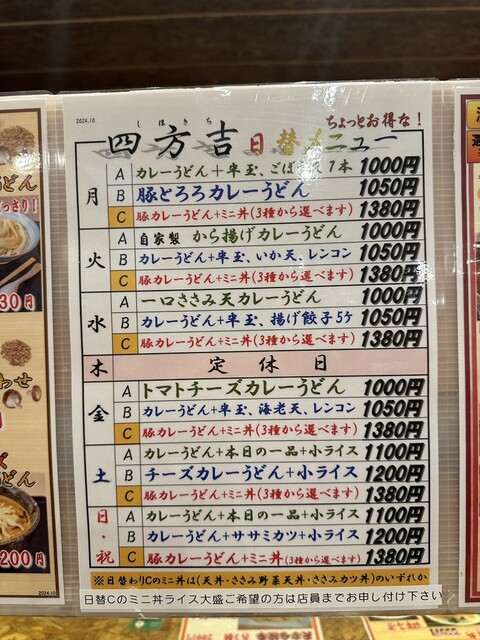 2024.10
しほきち
ちょっとお得な!
四方吉 日替メニュー
月
A カレーうどん+半玉、ごぼ 7本 1000円
B 豚とろろカレーうどん 1050円
C 豚カレーうどん+ミニ丼(3種から選べます) 1380円
火
A 自家製 から揚げカレーうどん 1000円
B カレーうどん+半玉、いか天、レンコン 1050円
C 豚カレーうどん+ミニ丼(3種から選べます) 1380円
水
A 一口ささみ天カレーうどん 1000円
B カレーうどん+半玉、揚げ餃子5ケ 1050円
C 豚カレーうどん+ミニ丼(3種から選べます) 1380円
木 定休日
金
A トマトチーズカレーうどん 1000円
B カレーうどん+半玉、海老天、レンコン 1050円
C 豚カレーうどん+ミニ丼(3種から選べます) 1380円
土
A カレーうどん+本日の一品+小ライス 1100円
B チーズカレーうどん+小ライス 1200円
C 豚カレーうどん+ミニ丼(3種から選べます) 1380円
日・祝
A カレーうどん+本日の一品+小ライス 1100円
B カレーうどん+ササミカツ+小ライス 1200円
C 豚カレーうどん+ミニ丼(3種から選べます) 1380円
※日替わりCのミニ丼は(天丼・ささみ野菜天丼・ささみカツ丼)のいずれか
日替Cのミニ丼ライス大盛ご希望の方は店員までお申し付け下さい
どん
30円
わせ
どん
200円
2024.10